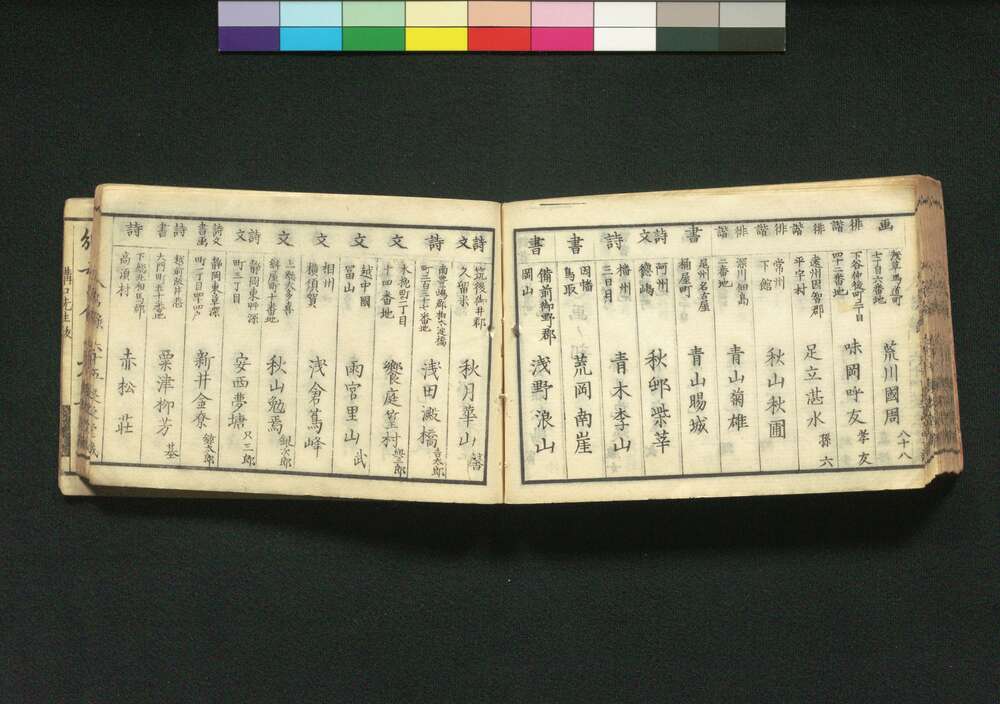 画
浅草馬道町
七丁目六番地
荒川國周
八十八
俳
諧
下谷仲徒町二丁目
四十二番地
味岡呼友
孝友
俳
諧
遠州周智郡
平宇村
足立湛水
孫六
俳
諧
常州
下館
秋山秋圃
俳
諧
深川佃島
二番地
青山菊雄
書
尾州名古屋
桶屋町
青山暘城
詩
文
阿州
德嶋
秋邨柴莘
詩
播州
三日月
青木李山
書
因幡
鳥取
荒岡南崖
書
備前御野郡
岡山
浅野浪山
詩
文
筑後御井郡
久留米
秋月華山
蕃
詩
文
南豊嶋郡柏木淀橋
町三百三十七番地
浅田澱橋
吉太郎
文
木挽町二丁目
十四番地
饗庭篁村
與三郎
文
越中國
冨山
雨宮里山
武
文
相州
横須賀
浅倉蔦峰
文
上総大多喜
紺屋町十番地
秋山勉焉
銀次郎
詩
文
静岡東草深
町三丁目
安西夢塘
只三郎
詩文
書画
静岡東草深
町一丁目四四戸
新井金寮
鐐太郎
詩
書
越前坂井港
大門町五十七番地
粟津柳芳
基
詩
下総北相馬郡
高須村
赤松荘